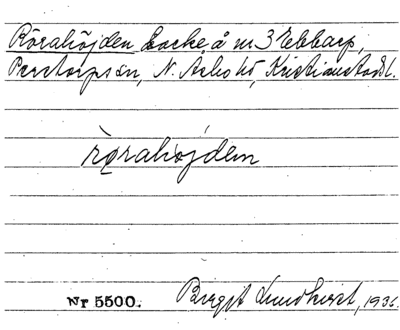 Rörahöjden backe å nr 3 Ebbarp,
Perstorps sn, N. Åsbo hd, Kristianstads l.
rörahöjden
Nr 5500. Birgit Lundkvist, 1936.